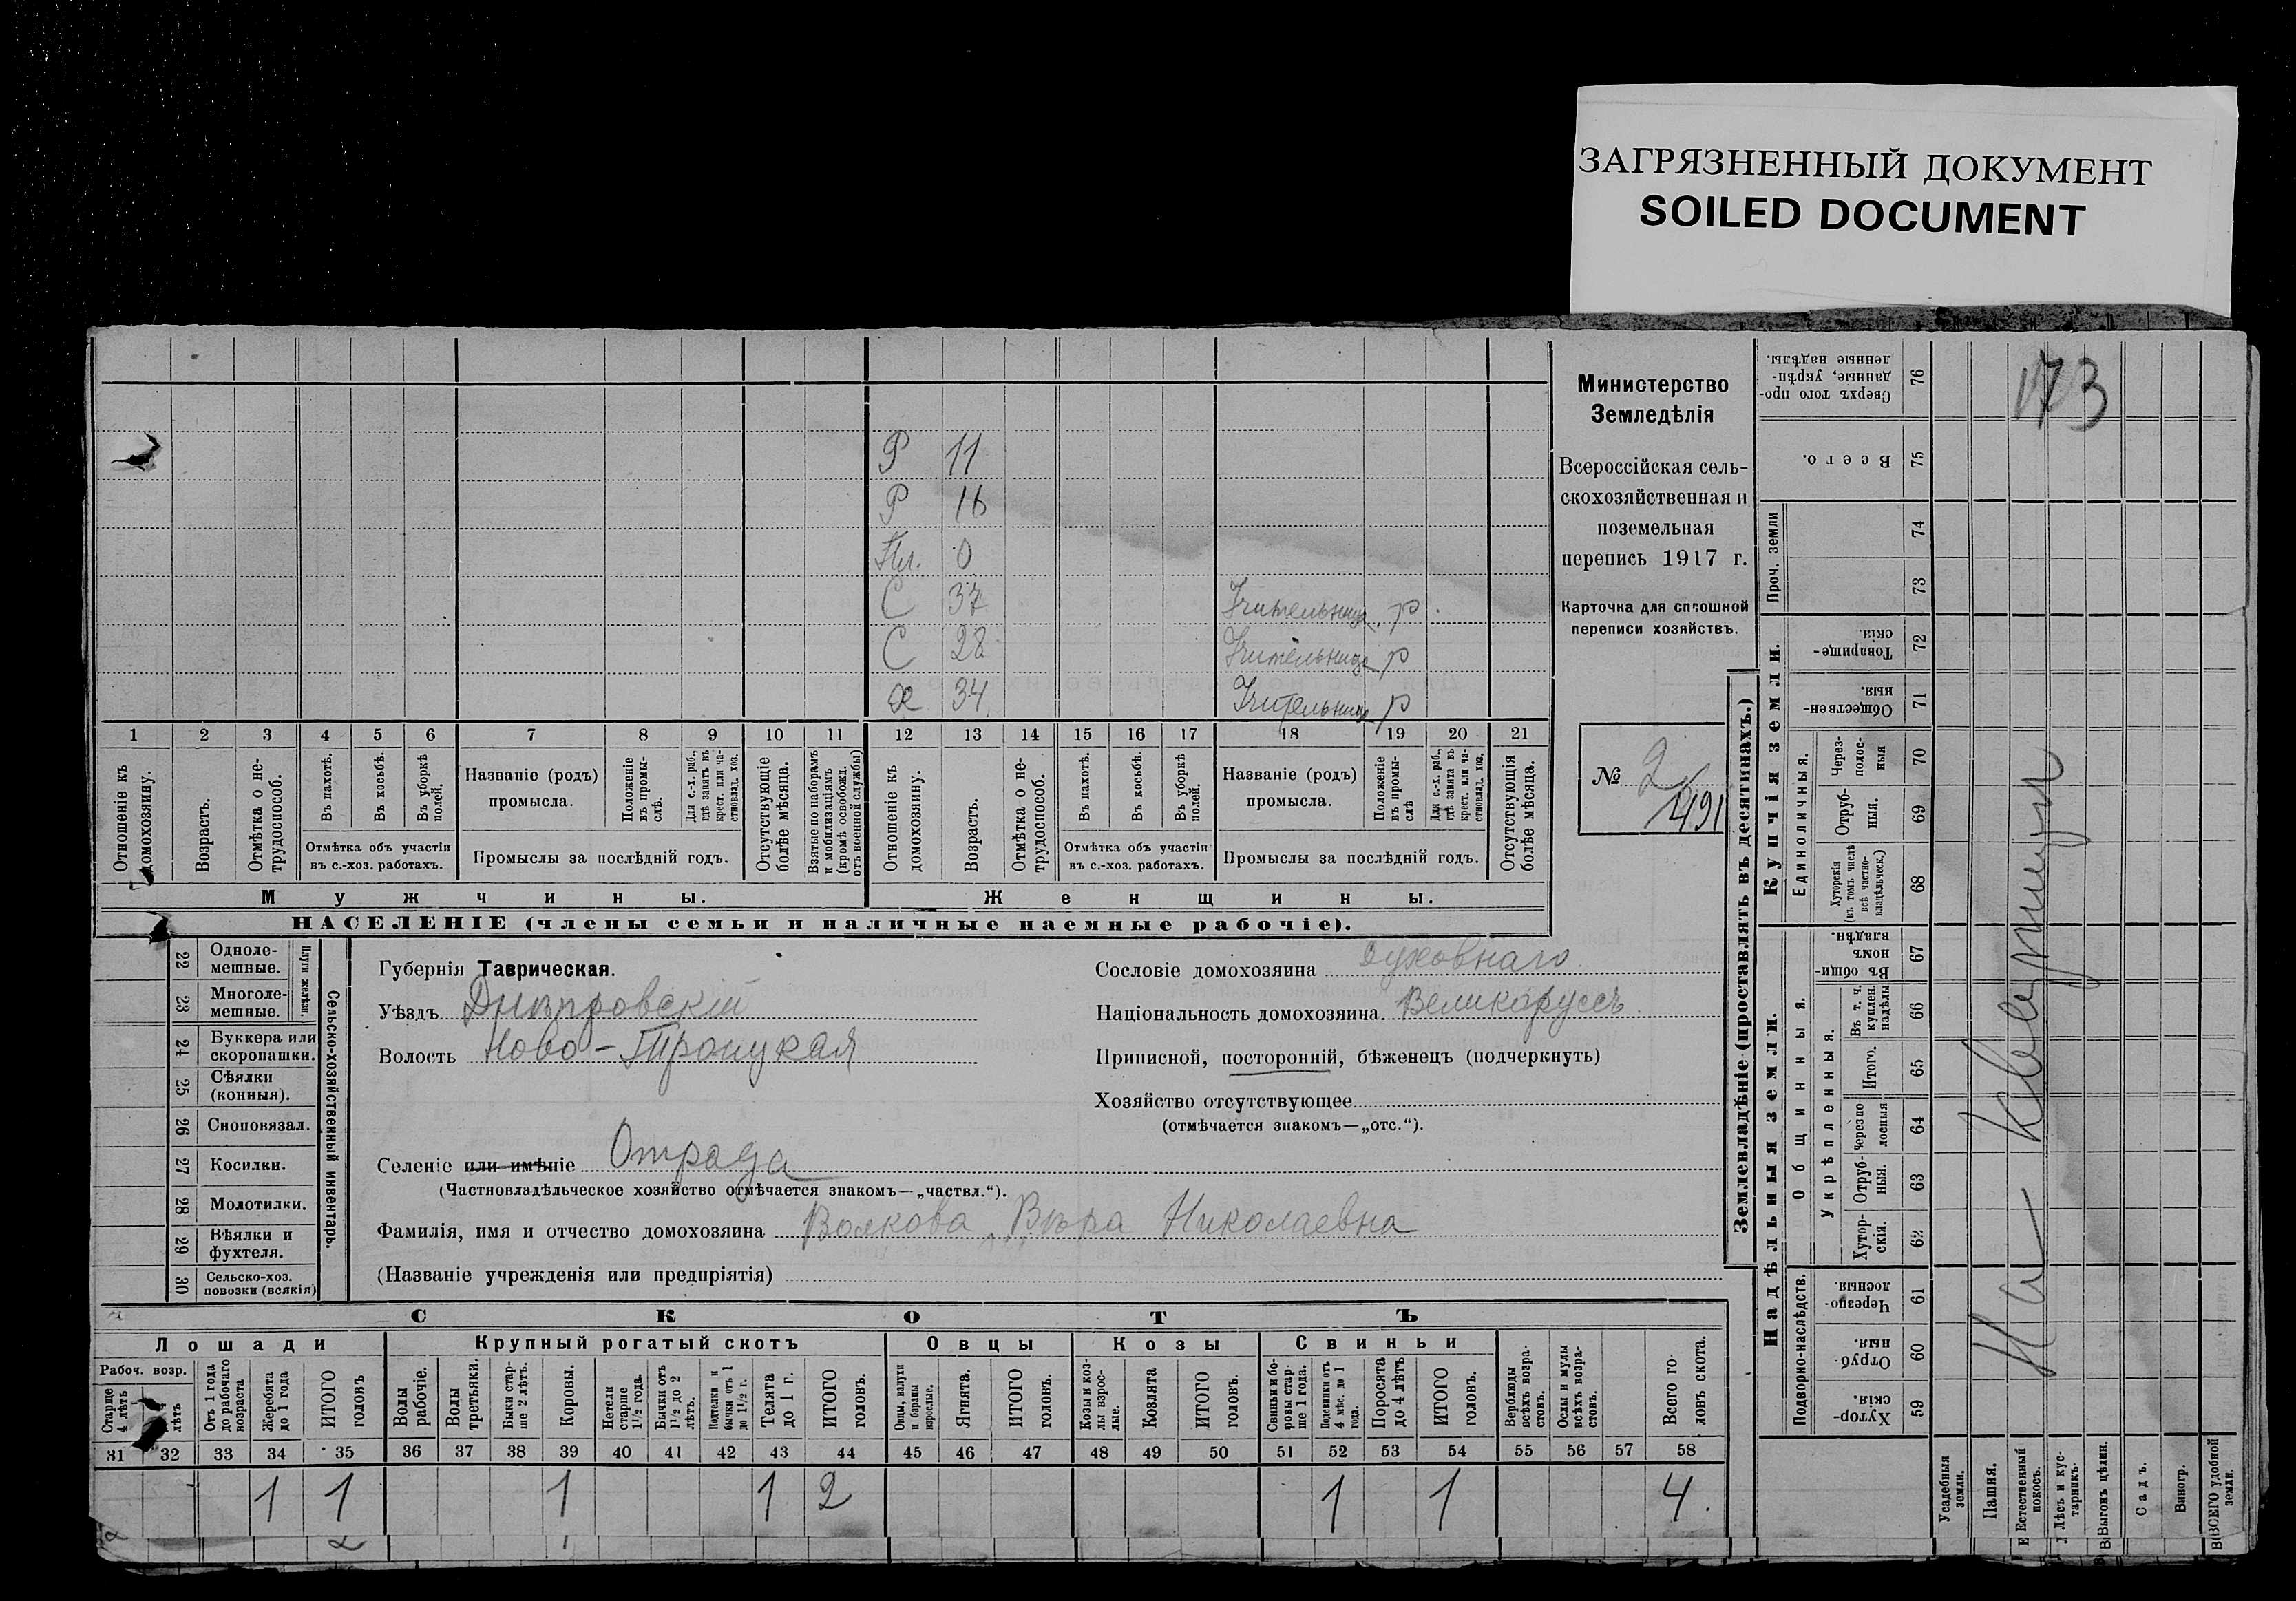 ЗАГРЯЗНЕННЫЙ ДОКУМЕНТ
SOILED DOCUMENT
173
Министерство
Земледѣлія
Всероссійская сель-
скохозяйственная и
поземельная
перепись 1917 г.
Карточка для сплошной
переписи хозяйствъ.
№ 2
491
Р 11
Р 16
Пл. 0
С 37 Учительница р
С 28 Учительница р
34 Учительница р
1 2 3 4 5 6 7 8 9 10 11 12 13 14 15 16 17 18 19 20 21
Отношеніе къ домохозяину.
Возрастъ.
Отмѣтка о не-трудоспособ.
Въ пахотѣ.
Въ косьбѣ.
Въ уборкѣ полей.
Отмѣтка объ участіи
въ с.-хоз. работахъ.
Названіе (родъ)
промысла.
Положеніе въ промы-слѣ.
Для с.-х. раб., гдѣ занятъ въ крест. или ча-стновлад. хоз.
Промыслы за послѣдній годъ.
Отсутствующіе болѣе мѣсяца.
Взятые по наборамъ и мобилизаціямъ (кромѣ освобожд. отъ военной службы)
Отношеніе къ домохозяину.
Возрастъ.
Отмѣтка о не-трудоспособ.
Въ пахотѣ.
Въ косьбѣ.
Въ уборкѣ полей.
Отмѣтка объ участіи
въ с.-хоз. работахъ.
Названіе (родъ)
промысла.
Положеніе въ промы-слѣ
Для с.-х. раб., гдѣ занята въ крест. или ча-стновлад. хоз.
Промыслы за послѣдній годъ.
Отсутствующія болѣе мѣсяца.
Мужчины.
Женщины.
НАСЕЛЕНІЕ (члены семьи и наличные наемные рабочіе).
Сельско-хозяйственный инвентарь.
Плуги желѣзн.
22 Одноле-мешные.
23 Многоле-мешные.
24 Буккера или скоропашки.
25 Сѣялки (конныя).
26 Сноповязал.
27 Косилки.
28 Молотилки.
29 Вѣялки и фухтеля.
30 Сельско-хоз. повозки (всякія)
Губернія Таврическая.
Уѣздъ Днѣпровскій
Волость Ново-Троицкая
Селеніе или имѣніе Отрада
(Частновладѣльческое хозяйство отмѣчается знакомъ—„частвл.“).
Фамилія, имя и отчество домохозяина Волкова Вѣра Николаевна
(Названіе учрежденія или предпріятія)
Сословіе домохозяина духовнаго
Національность домохозяина Великоруссъ
Приписной, посторонній, бѣженецъ (подчеркнуть)
Хозяйство отсутствующее
(отмѣчается знакомъ—„отс.“).
СКОТЪ
Лошади
Крупный рогатый скотъ
Овцы
Козы
Свиньи
Рабоч. возр.
Старше 4 лѣтъ
лѣтъ
Отъ 1 года до рабочаго возраста
Жеребята до 1 года
ИТОГО головъ
Волы рабочіе.
Волы третьяки.
Быки стар-ше 2 лѣтъ.
Коровы.
Нетели старше 1½ года.
Бычки отъ 1½ до 2 лѣтъ.
бычки отъ 1 до 1½ г.
Телята до 1 г.
ИТОГО головъ.
Овцы, валухи и бараны взрослые.
Ягнята.
ИТОГО головъ.
Козы и коз-лы взрос-лые.
Козлята
ИТОГО головъ.
Свиньи и бо-ровы стар-ше 1 года.
Подсвинки отъ 4 мѣс. до 1 года.
Поросята до 4 лѣтъ
ИТОГО головъ.
Верблюды всѣхъ возра-стовъ.
Ослы и мулы всѣхъ возра-стовъ.
Всего го-ловъ скота.
31 32 33 34 35 36 37 38 39 40 41 42 43 44 45 46 47 48 49 50 51 52 53 54 55 56 57 58
1 1 1 1 2 1 1 4.
2 1
Землевладѣніе (проставлять въ десятинахъ.)
Сверхъ того про-данные, укрѣп-ленные надѣлы. 76
Всего. 75
Проч. земли 74 73
Купчія земли.
Товарище-скія. 72
Обществен-ныя. 71
Единоличныя.
Через-полос-ныя 70
Отруб-ныя. 69
Хуторскія (въ томъ числѣ всѣ частно-владѣльческ.) 68
Надѣльныя земли.
Общинныя.
Въ общи-номъ владѣн. 67
Укрѣпленныя.
Въ т. ч. куплен. надѣлы 66
Итого. 65
Черезпо лосныя 64
Отруб-ныя. 63
Хутор-скія. 62
Подворно-наслѣдств.
Черезпо-лосныя. 61
Отруб-ныя. 60
Хутор-скія. 59
Усадебныя земли.
Пашня.
Естественный покосъ.
Лѣсъ и кус-тарникъ.
Выгонъ цѣлин.
Садъ.
Виногр.
ВСЕГО удобной земли.
На квартирѣ